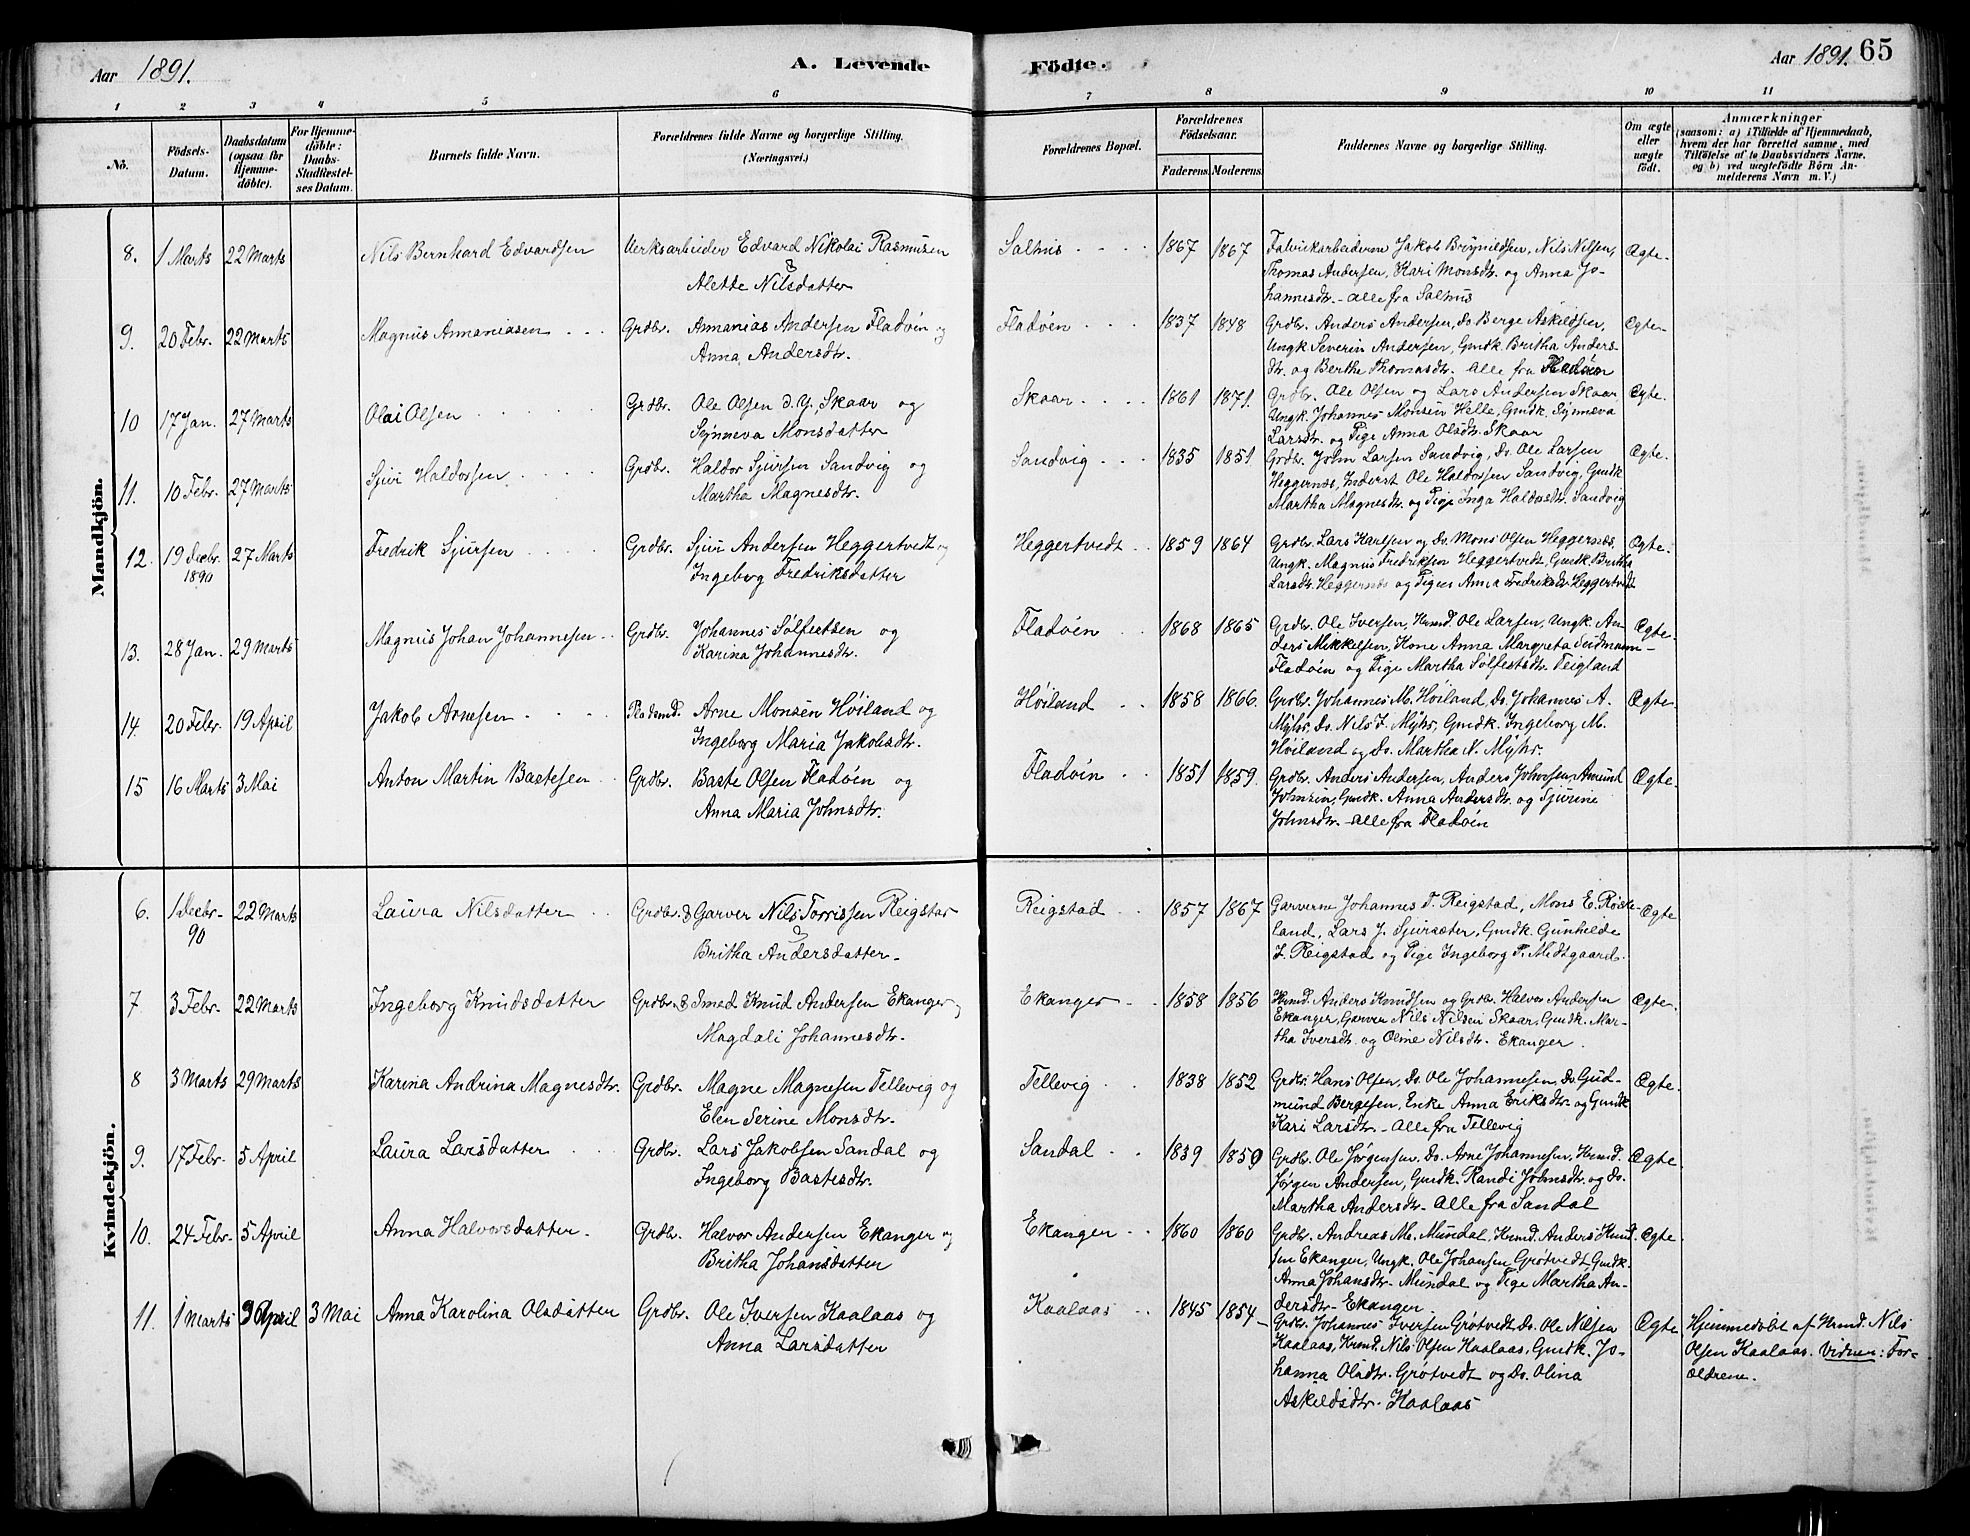 Aar 1891.
A. Levende Födte.
Aar 1891. 65
1 2 3 4 5 6 7 8 9 10 11
No.
Födsels-Datum.
Daabsdatum (ogsaa for Hjemme-döbte).
For Hjemme-döbte: Daabs-Stadfæstel-ses Datum.
Barnets fulde Navn.
Forældrenes fulde Navne og borgerlige Stilling. (Næringsvei.)
Forældrenes Bopæl.
Forældrenes Födselsaar.
Faderens. Moderens.
Faddernes Navne og borgerlige Stilling.
Om ægte eller uægte födt.
Anmærkninger
(saasom: a) i Tilfælde af Hjemmedaab, hvem der har forrettet samme, med Tilföielse af to Daabsvidners Navne, og b) ved uægtefödte Börn Anmelderens Navn m. V.)
Mandkjön.
8. 1 Marts 22 Marts Nils Bernhard Edvardsen Verksarbeider Edvard Nikolai Rasmusen & Alette Nilsdatter Salhus 1867 1867 Fabrikarbeiderne Jakob Brynildsen, Nils Nilsen,
Thomas Andersen, Kari Monsdtr. og Anna Jo-
hannesdtr. - alle fra Salhus Ægte.
9. 20 Febr. 22 Marts Magnus Annaniasen Grdbr. Annanias Andersen Fladöen og Anna Andersdtr. Fladöen 1837 1848 Grdbr. Anders Andersen, Do. Berge Askildsen,
Ungk Severin Andersen, Gmdk. Britha Anders-
dtr. og Berthe Thomasdtr. alle fra Fladöen Ægte
10 17 Jan. 27 Marts Olai Olsen Grdbr. Ole Olsen d. Y. Skaar og Synneva Monsdatter Skaar 1861 1871. Grdbr. Ole Olsen og Lars Andersen Skaar
Ungk. Johannes Monsen Helle, Gmdk. Synneva
Larsdtr. og Pige Anna Olsdtr. Skaar Ægte.
11. 10 Febr. 27 Marts Sjur Haldorsen Grdbr. Haldor Sjursen Sandvig og Martha Magnesdtr. Sandvig 1835 1851 Grdbr. John Larsen Sandvig, Do. Ole Larsen
Heggernes, Inderst Ole Haldorsen Sandvig, Gmdk
Martha Magnesdtr. og Pige Inga Haldorsdtr. Sandvig Ægte.
12. 19 Decbr. 1890 27 Marts Fredrik Sjursen Grdbr. Sjur Andersen Heggertvedt og Ingeborg Fredriksdatter Heggertvedt 1859 1864 Grdbr. Lars Karlsen og Do. Mons Olsen Heggernes,
Ungk. Magnus Fredriksen Heggertvedt. Gmdk Britha
Larsdtr. Heggernes og Pigen Anna Fredriksdtr. Heggertvedt Ægte.
13. 28 Jan. 29 Marts Magnus Johan Johannesen Grdbr. Johannes Sölfestsen og Karina Johannesdtr. Fladöen 1868 1865 Grdbr. Ole Iversen, Krmd. Ole Larsen, Ungk. An-
ders Mikkelsen, Kone Anna Margreta
Fladöen og Pige Martha Sölfestsdtr. Teigland Ægte.
14. 20 Febr. 19 April Jakob Arnesen Pladsmd. Arne Monsen Höiland og Ingeborg Maria Jakobsdtr. Höiland 1858 1866. Grdbr. Johannes M. Höiland, Do. Johannes A.
Myhr, Do. Nils J. Myhr, Gmdk. Ingeborg M.
Höiland og Do. Martha N. Myhr. Ægte.
15 16 Marts 3 Mai Anton Martin Bastesen Grdbr. Baste Olsen Fladöen og Anna Maria Johnsdtr. Fladöen 1851 1859. Grdbr. Anders Andersen, Anders Johnsen, Amund
Johnsen, Gmdk. Anna Andersdtr. og Sjurine
Johnsdtr. - alle fra Fladöen Ægte.
Kvindekjön.
6. 1 Decbr. 90 22 Marts Laura Nilsdatter Grdbr. & Garver Nils Torrissen Reigstad & Britha Andersdatter. Reigstad 1857 1867 Garverne Johannes T. Reigstad, Mons E.
land, Lars J. Sjursæter, Gmdk. Gunhilde
L. Reigstad og Pige Ingeborg P. Midtgaard. Ægte
7. 3 Febr. 22 Marts Ingeborg Knudsdatter Grdbr. & Smed Knud Andersen Ekanger og Magdali Johannesdtr. Ekanger 1858 1856 Krmd. Anders Knudsen og Grdbr. Halvor Andersen
Ekanger, Garver Nils Nilsen Skaar, Gmdk. Mar-
tha Iversdtr. og Oline Nilsdtr. Ekanger. Ægte.
8 3 Marts 29 Marts Karina Andrina Magnesdtr. Grdbr. Magne Magnesen Tellevig og Elen Serine Monsdtr. Tellevig 1838 1852 Grdbr. Hans Olsen, Do. Ole Johannesen, Do. Gud-
mund Bergesen, Enke Anna Eriksdtr. og Gmdk
Kari Larsdtr. - Alle fra Tellevig Ægte.
9. 17 Febr. 5 April Laura Larsdatter Grdbr. Lars Jakobsen Sandal og Ingeborg Bastesdtr. Sandal 1839 1850 Grdbr. Ole Jørgensen, Do. Arne Johannesen, Krmd.
Jørgen Andersen, Gmdk. Randi Johnsdtr. og Do.
Martha Andersdtr. - Alle fra Sandal Ægte.
10. 24 Febr. 5 April Anna Halvorsdatter Grdbr. Halvor Andersen Ekanger og Britha Johansdatter Ekanger 1860 1860 Grdbr. Andreas M. Mundal, Krmd. Anders Knud-
sen Ekanger, Ungk. Ole Johansen Grötvedt, Gmdk.
Anna Johansdtr. Mundal og Pige Martha An-
dersdtr. Ekanger. Ægte
11. 1 Marts April 3 Mai Anna Karolina Olsdatter Grdbr. Ole Iversen Kaalaas og Anna Larsdatter Kaalaas 1845 1854 Grdbr. Johannes Iversen Grötvedt, Do. Ole Nilsen
Kaalaas, Krmd. Nils Olsen Kaalaas, Gmdk. Jo-
hanna Olsdtr. Grötvedt og Do. Olina
Askildsdtr. Kaalaas Ægte Hjemmedöbt af Krmd. Nils
Olsen Kaalaas. Vidner: For-
ældrene.